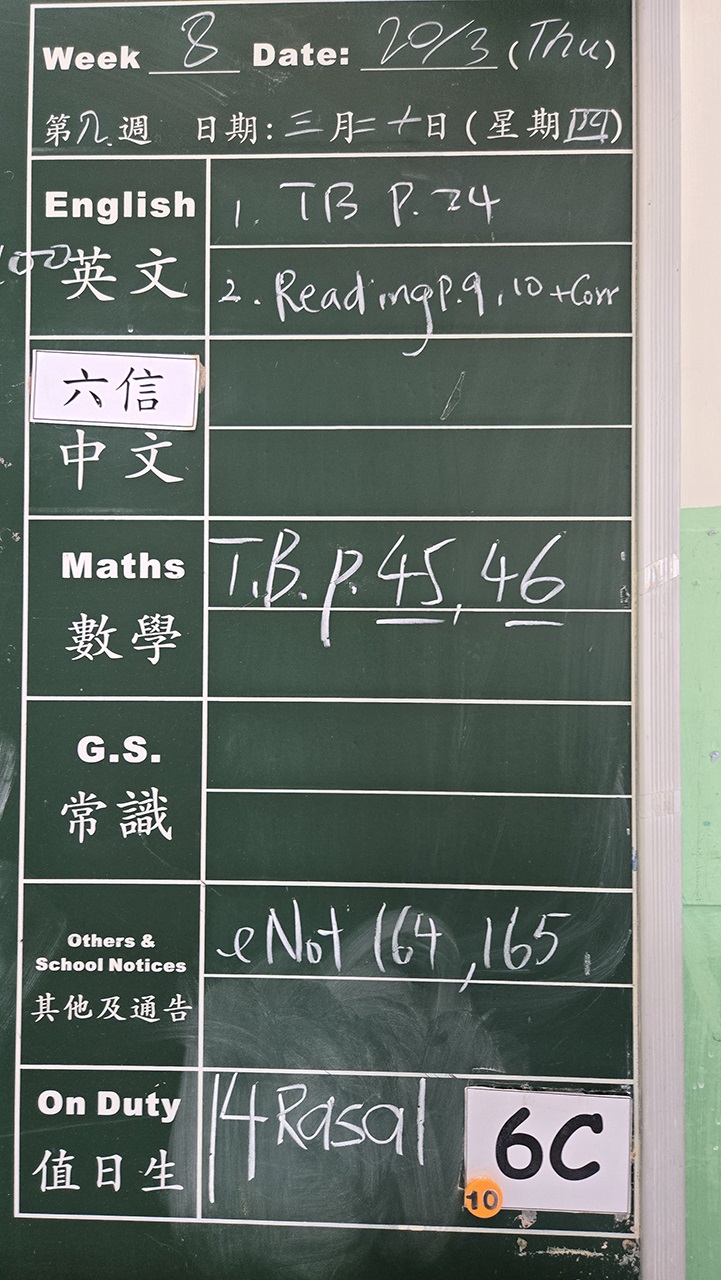 Week 8 Date: 20/3 (Thu)
第八週 日期: 三月二十日 (星期四)
English 1. TB P.34
100
英文 2. Reading P.9, 10 + Corr
六信
中文
Maths T.B. p. 45, 46
數學
G.S.
常識
Others &
School Notices eNot 164, 165
其他及通告
On Duty 14 Rasal
值日生
6C
10